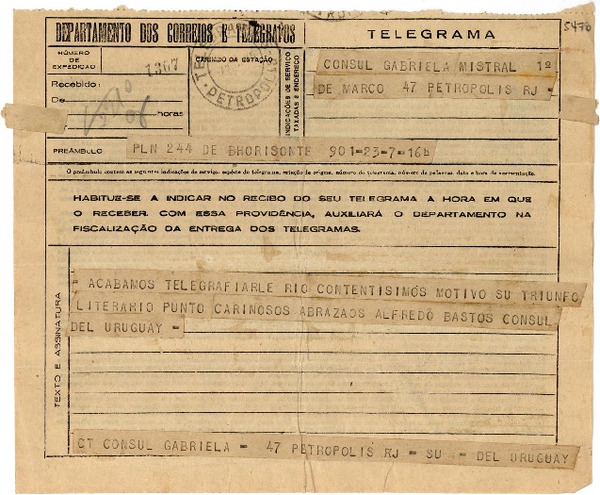 5470
DEPARTAMENTO DOS CORREIOS E TELEGRAFOS
TELEGRAMA
NÚMERO DE EXPEDIÇÃO
1307
CARIMBO DA ESTAÇÃO
PETROPOLIS
INDICAÇÕES DE SERVIÇO TAXADAS E ENDEREÇO
CONSUL GABRIELA MISTRAL 1º
DE MARCO 47 PETROPOLIS RJ =
Recebido:
De
horas
PREÂMBULO
PLN 244 DE BHORISONTE 901-23-7-16h
O preâmbulo contem as seguintes indicações de serviço, espécie do telegrama, estação de origem, número do telegrama, número de palavras, data e hora da apresentação.
HABITUE-SE A INDICAR NO RECIBO DO SEU TELEGRAMA A HORA EM QUE
O RECEBER. COM ESSA PROVIDÊNCIA, AUXILIARÁ O DEPARTAMENTO NA
FISCALIZAÇÃO DA ENTREGA DOS TELEGRAMAS.
TEXTO E ASSINATURA
= ACABAMOS TELEGRAFIARLE RIO CONTENTISIMOS MOTIVO SU TRIUNFO
LITERARIO PUNTO CARINOSOS ABRAZAOS ALFREDO BASTOS CONSUL
DEL URUGUAY =
CT CONSUL GABRIELA = 47 PETROPOLIS RJ = SU = DEL URUGUAY